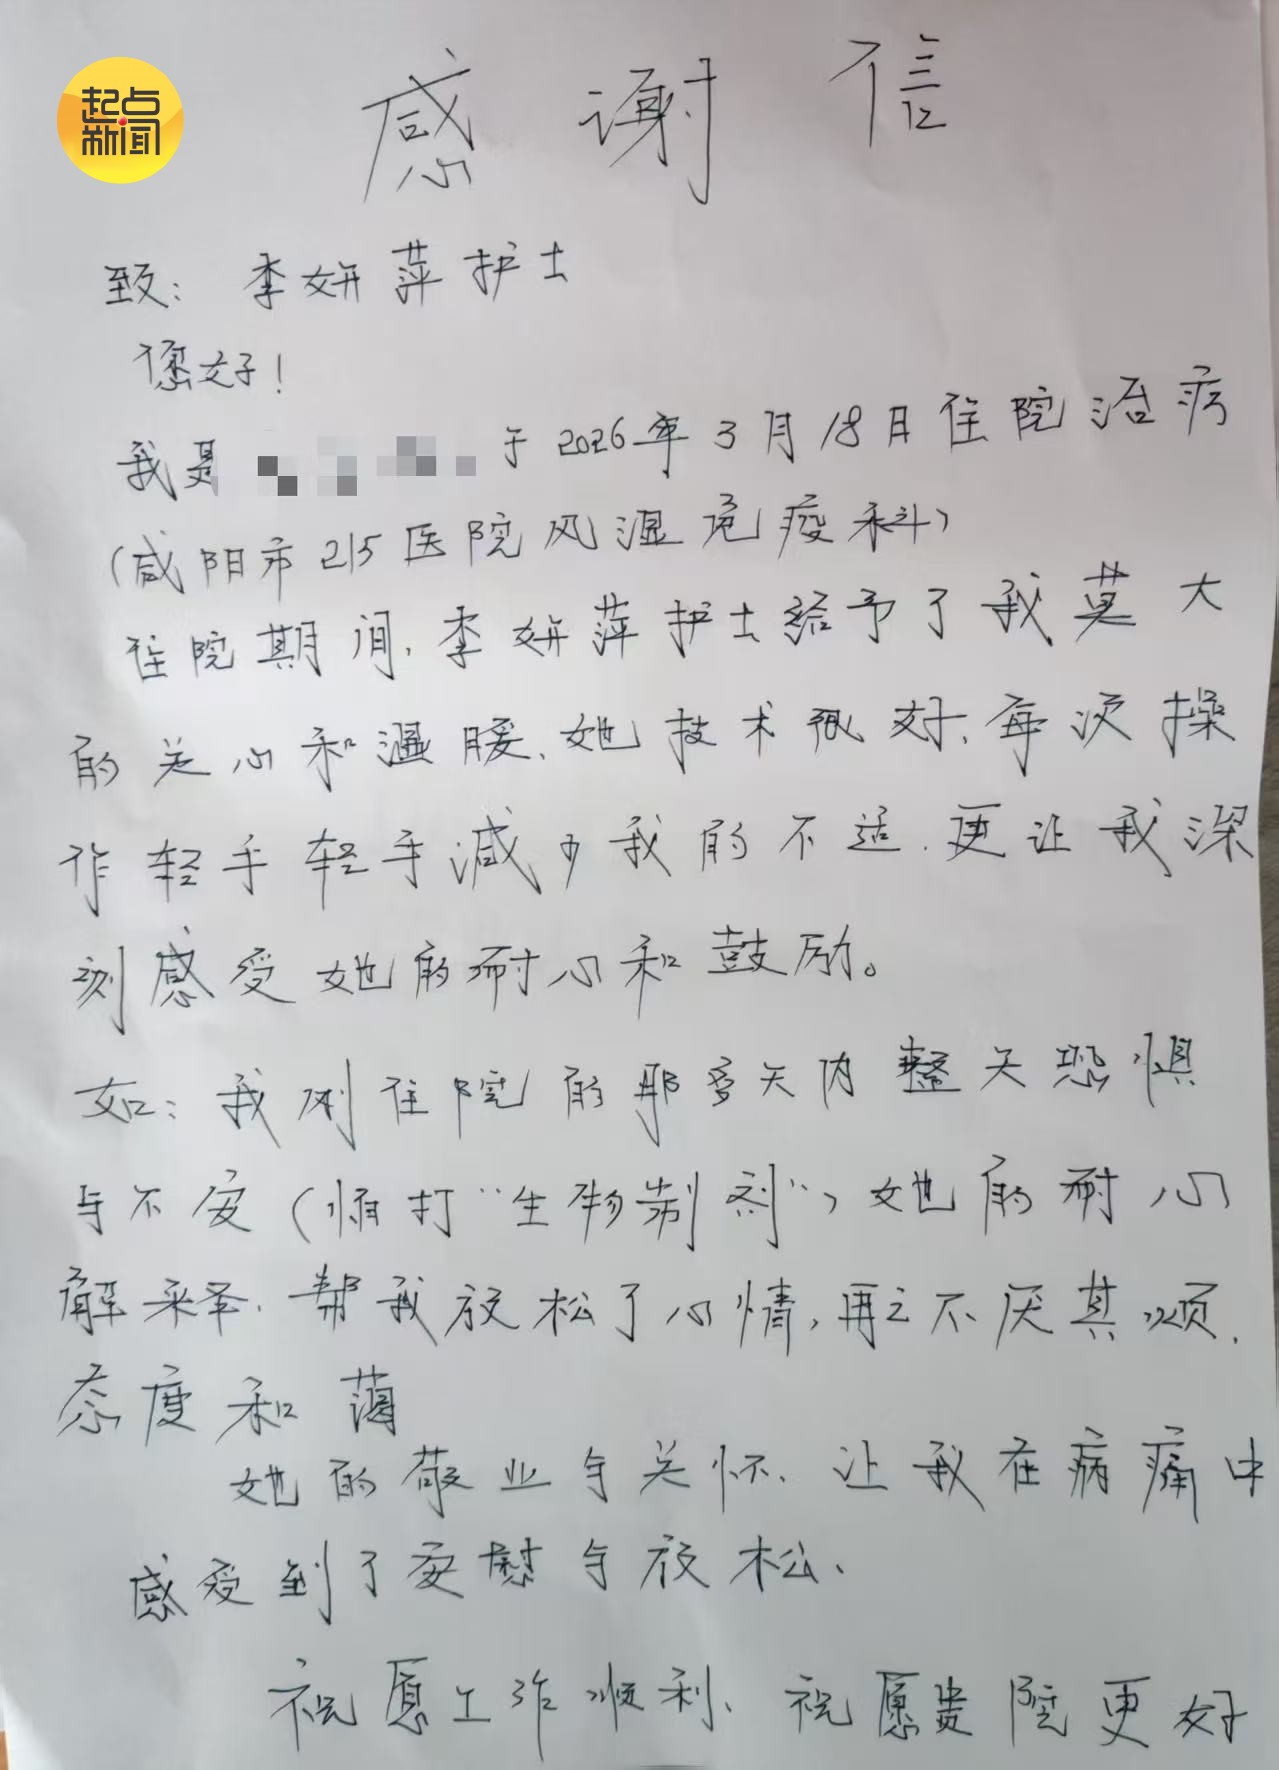 起点
新闻
感谢信
致：李妍萍护士
您好！
我是 于2026年3月18日住院治病
（咸阳市215医院风湿免疫科）
住院期间，李妍萍护士给予了我莫大
的关心和温暖、她技术很好、每次操
作轻手轻手减少我的不适、更让我深
刻感受她的耐心和鼓励。
如：我刚住院的那多天内整天恐惧
与不安（怕打“生物制剂”）她的耐心
解释、帮我放松了心情，再之不厌其烦、
态度和蔼
她的敬业与关怀、让我在病痛中
感受到了安慰与放松、
祝愿工作顺利、祝愿贵院更好